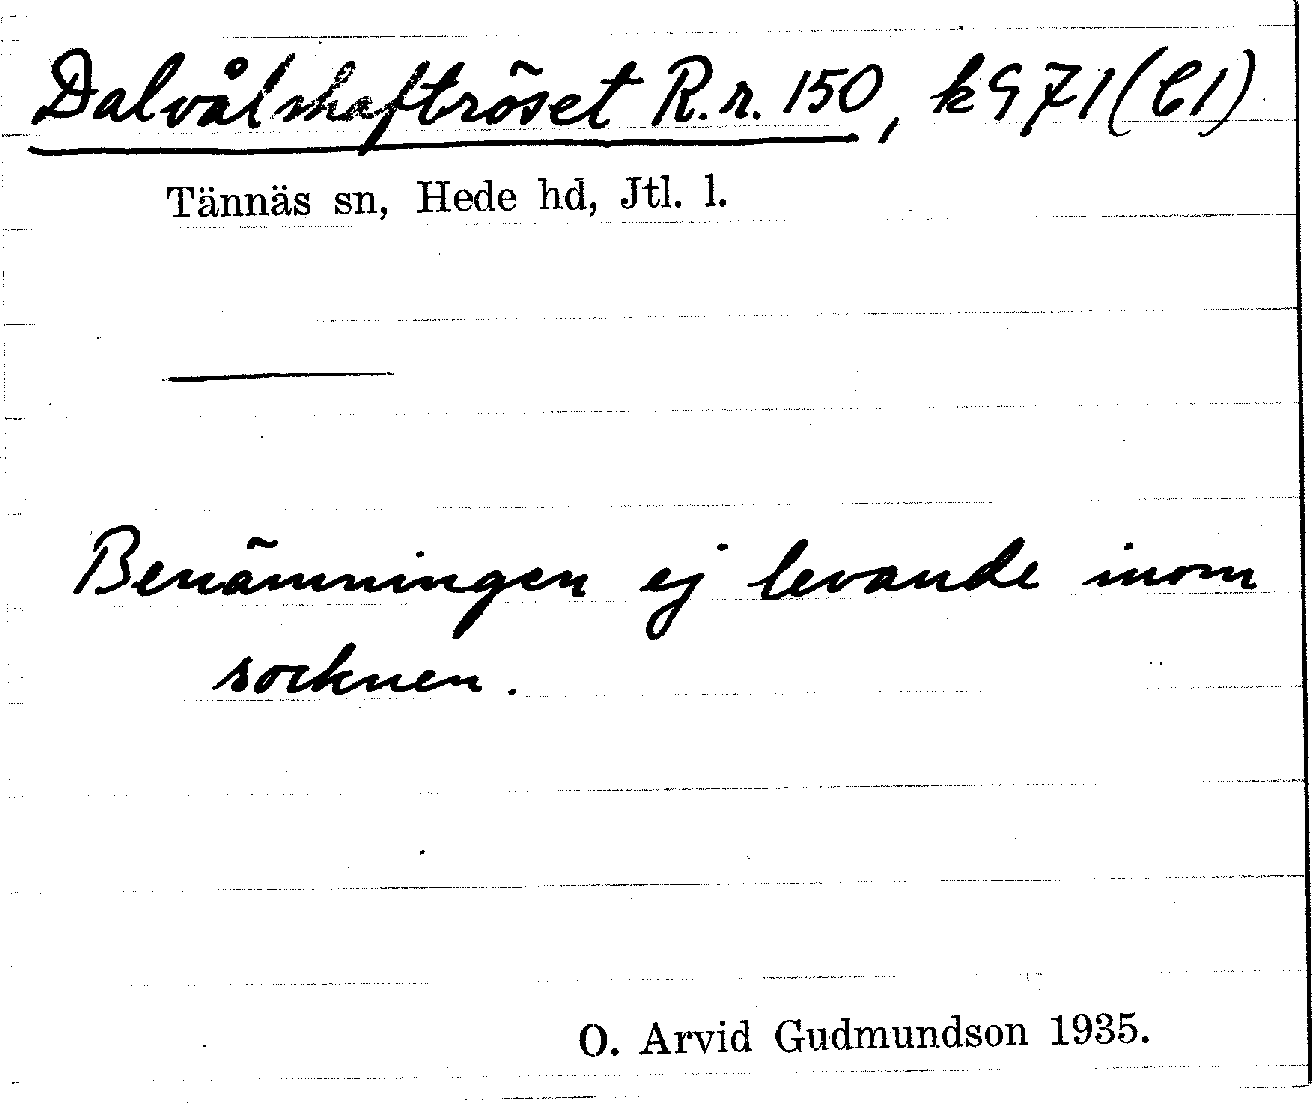 Dalvålskaftröset R.r. 150, k971(C1)
Tännäs sn, Hede hd, Jtl. l.
Benämningen ej levande inom
socknen.
O. Arvid Gudmundson 1935.